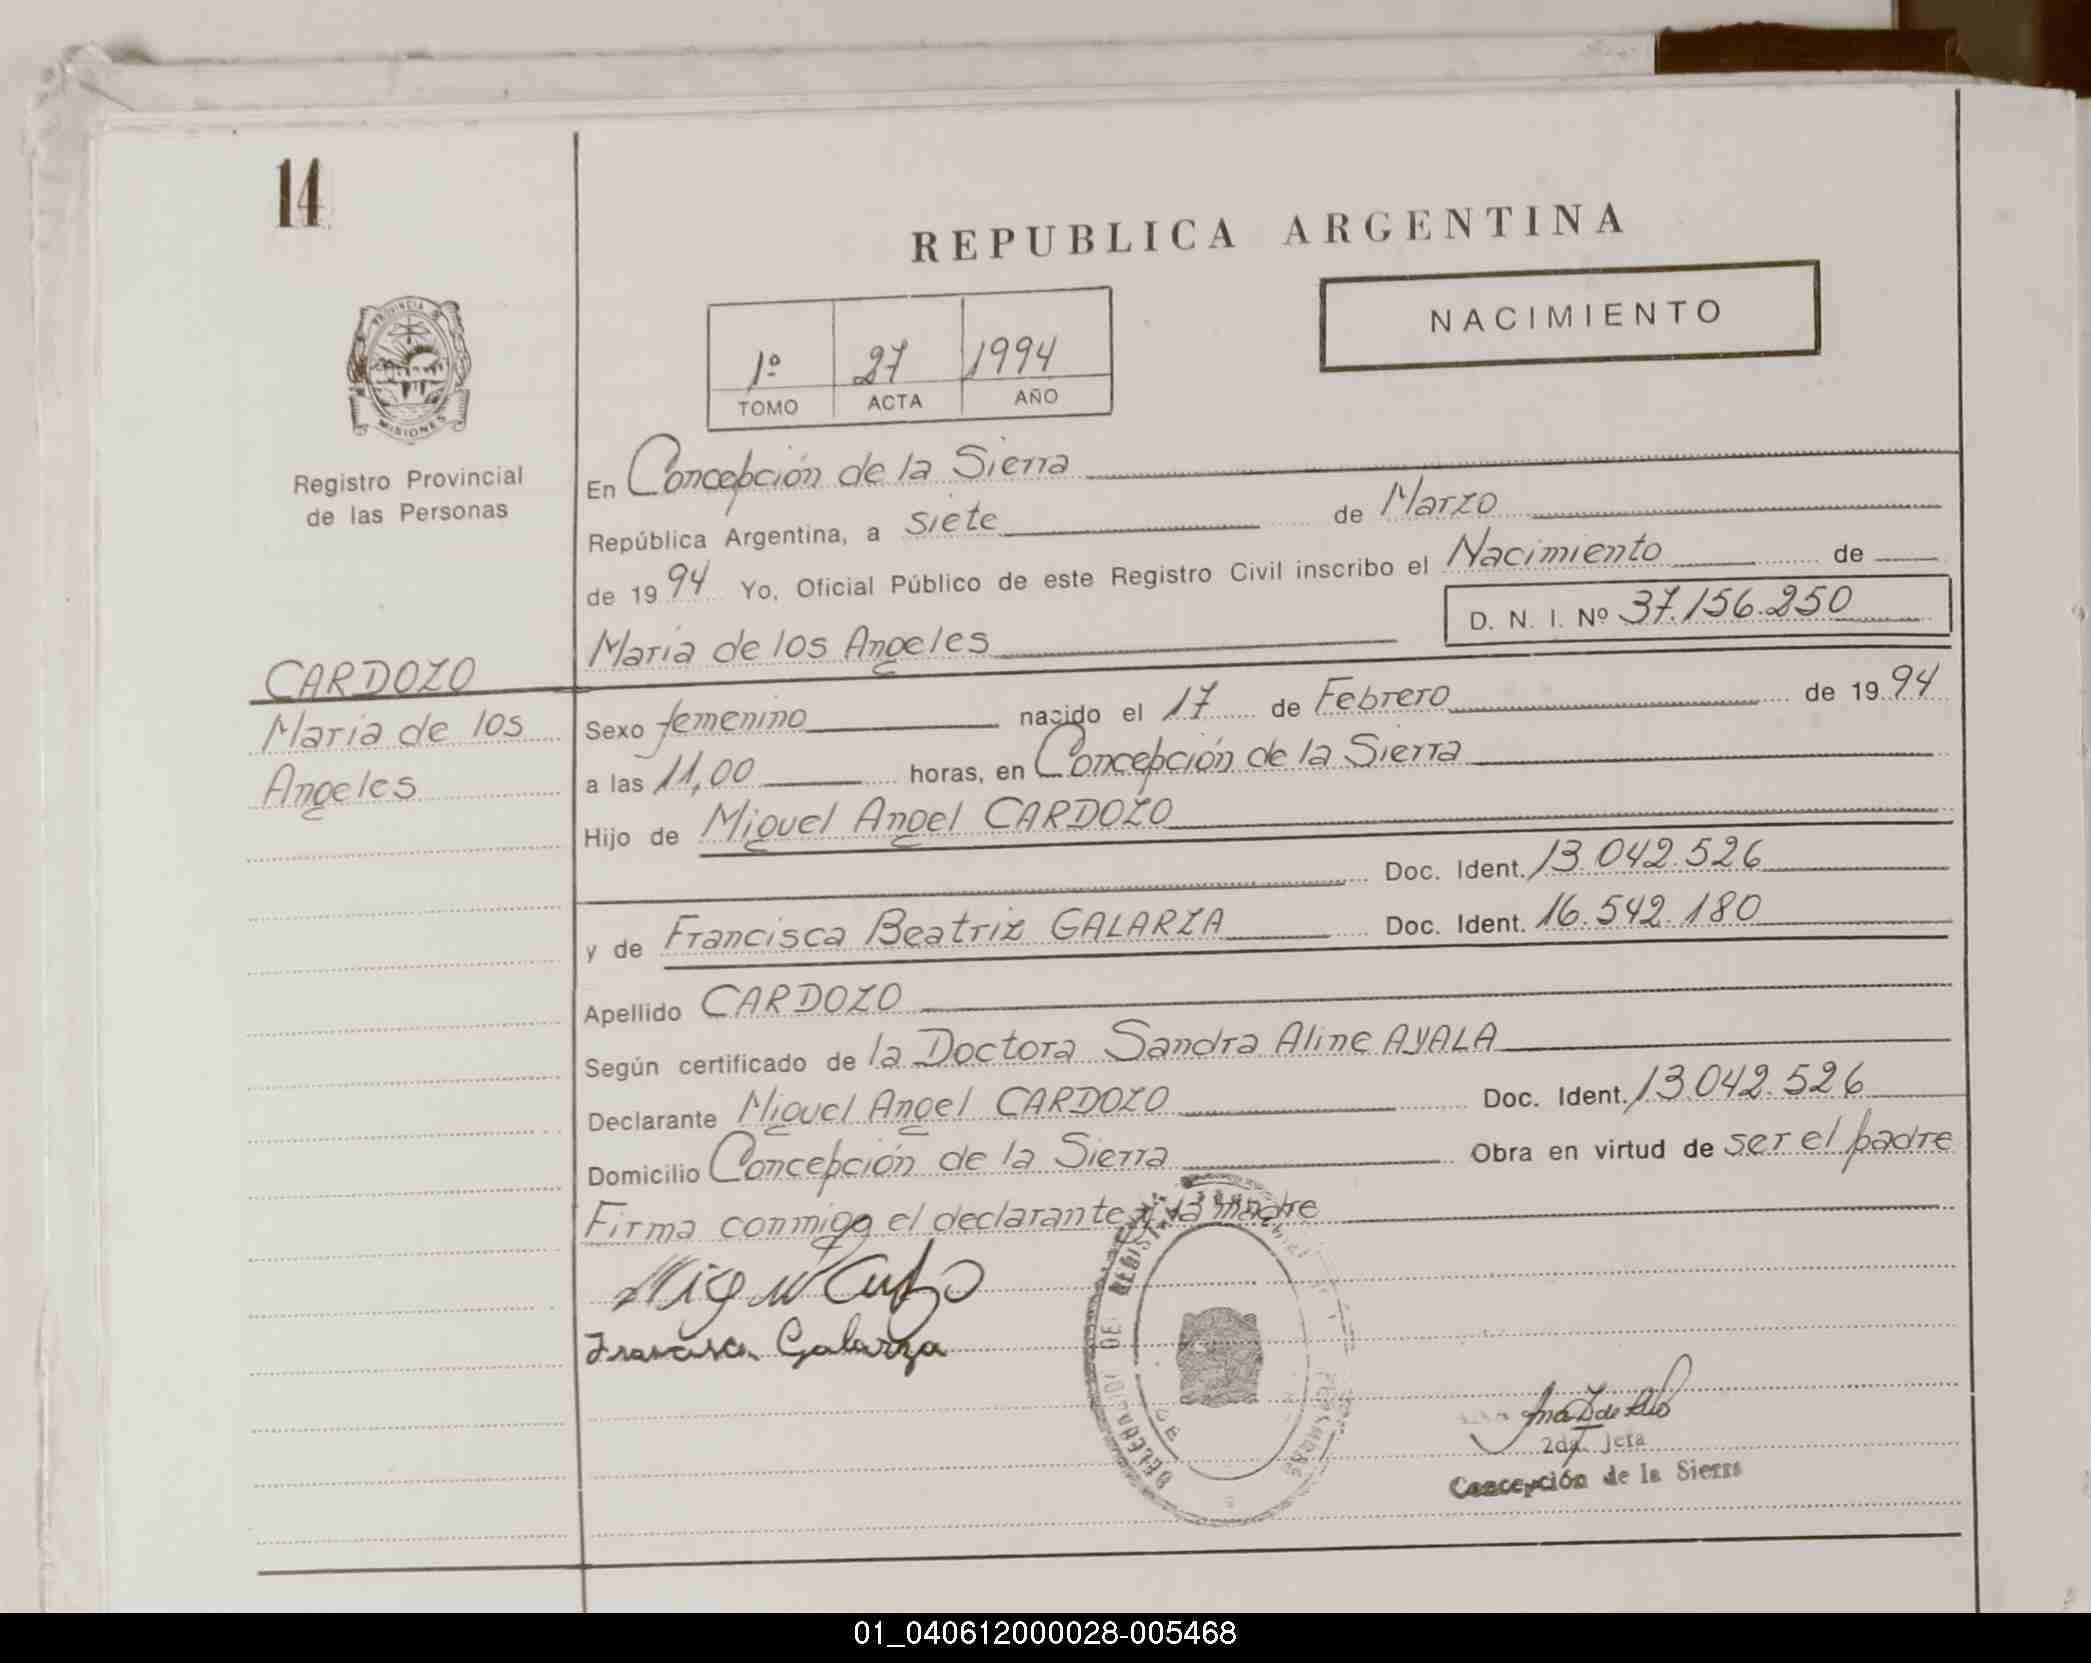 14
REPUBLICA ARGENTINA
NACIMIENTO
1º 27 1994
TOMO ACTA AÑO
PROVINCIA
MISIONES
Registro Provincial
de las Personas
En Concepción de la Sierra
República Argentina, a siete de Marzo
de 1994 Yo, Oficial Público de este Registro Civil inscribo el Nacimiento de
D. N. I. Nº 37.156.250
María de los Angeles
CARDOZO
María de los
Angeles
Sexo femenino nacido el 17 de Febrero de 1994
a las 11,00 horas, en Concepción de la Sierra
Hijo de Miguel Angel CARDOZO
Doc. Ident. 13.042.526
y de Francisca Beatriz GALARZA Doc. Ident. 16.542.180
Apellido CARDOZO
Según certificado de la Doctora Sandra Aline AYALA
Declarante Miguel Angel CARDOZO Doc. Ident. 13.042.526
Domicilio Concepción de la Sierra Obra en virtud de ser el padre
Firma conmigo el declarante y la madre
Francisca Galarza
2da. Jefa
Concepción de la Sierra
01_040612000028-005468